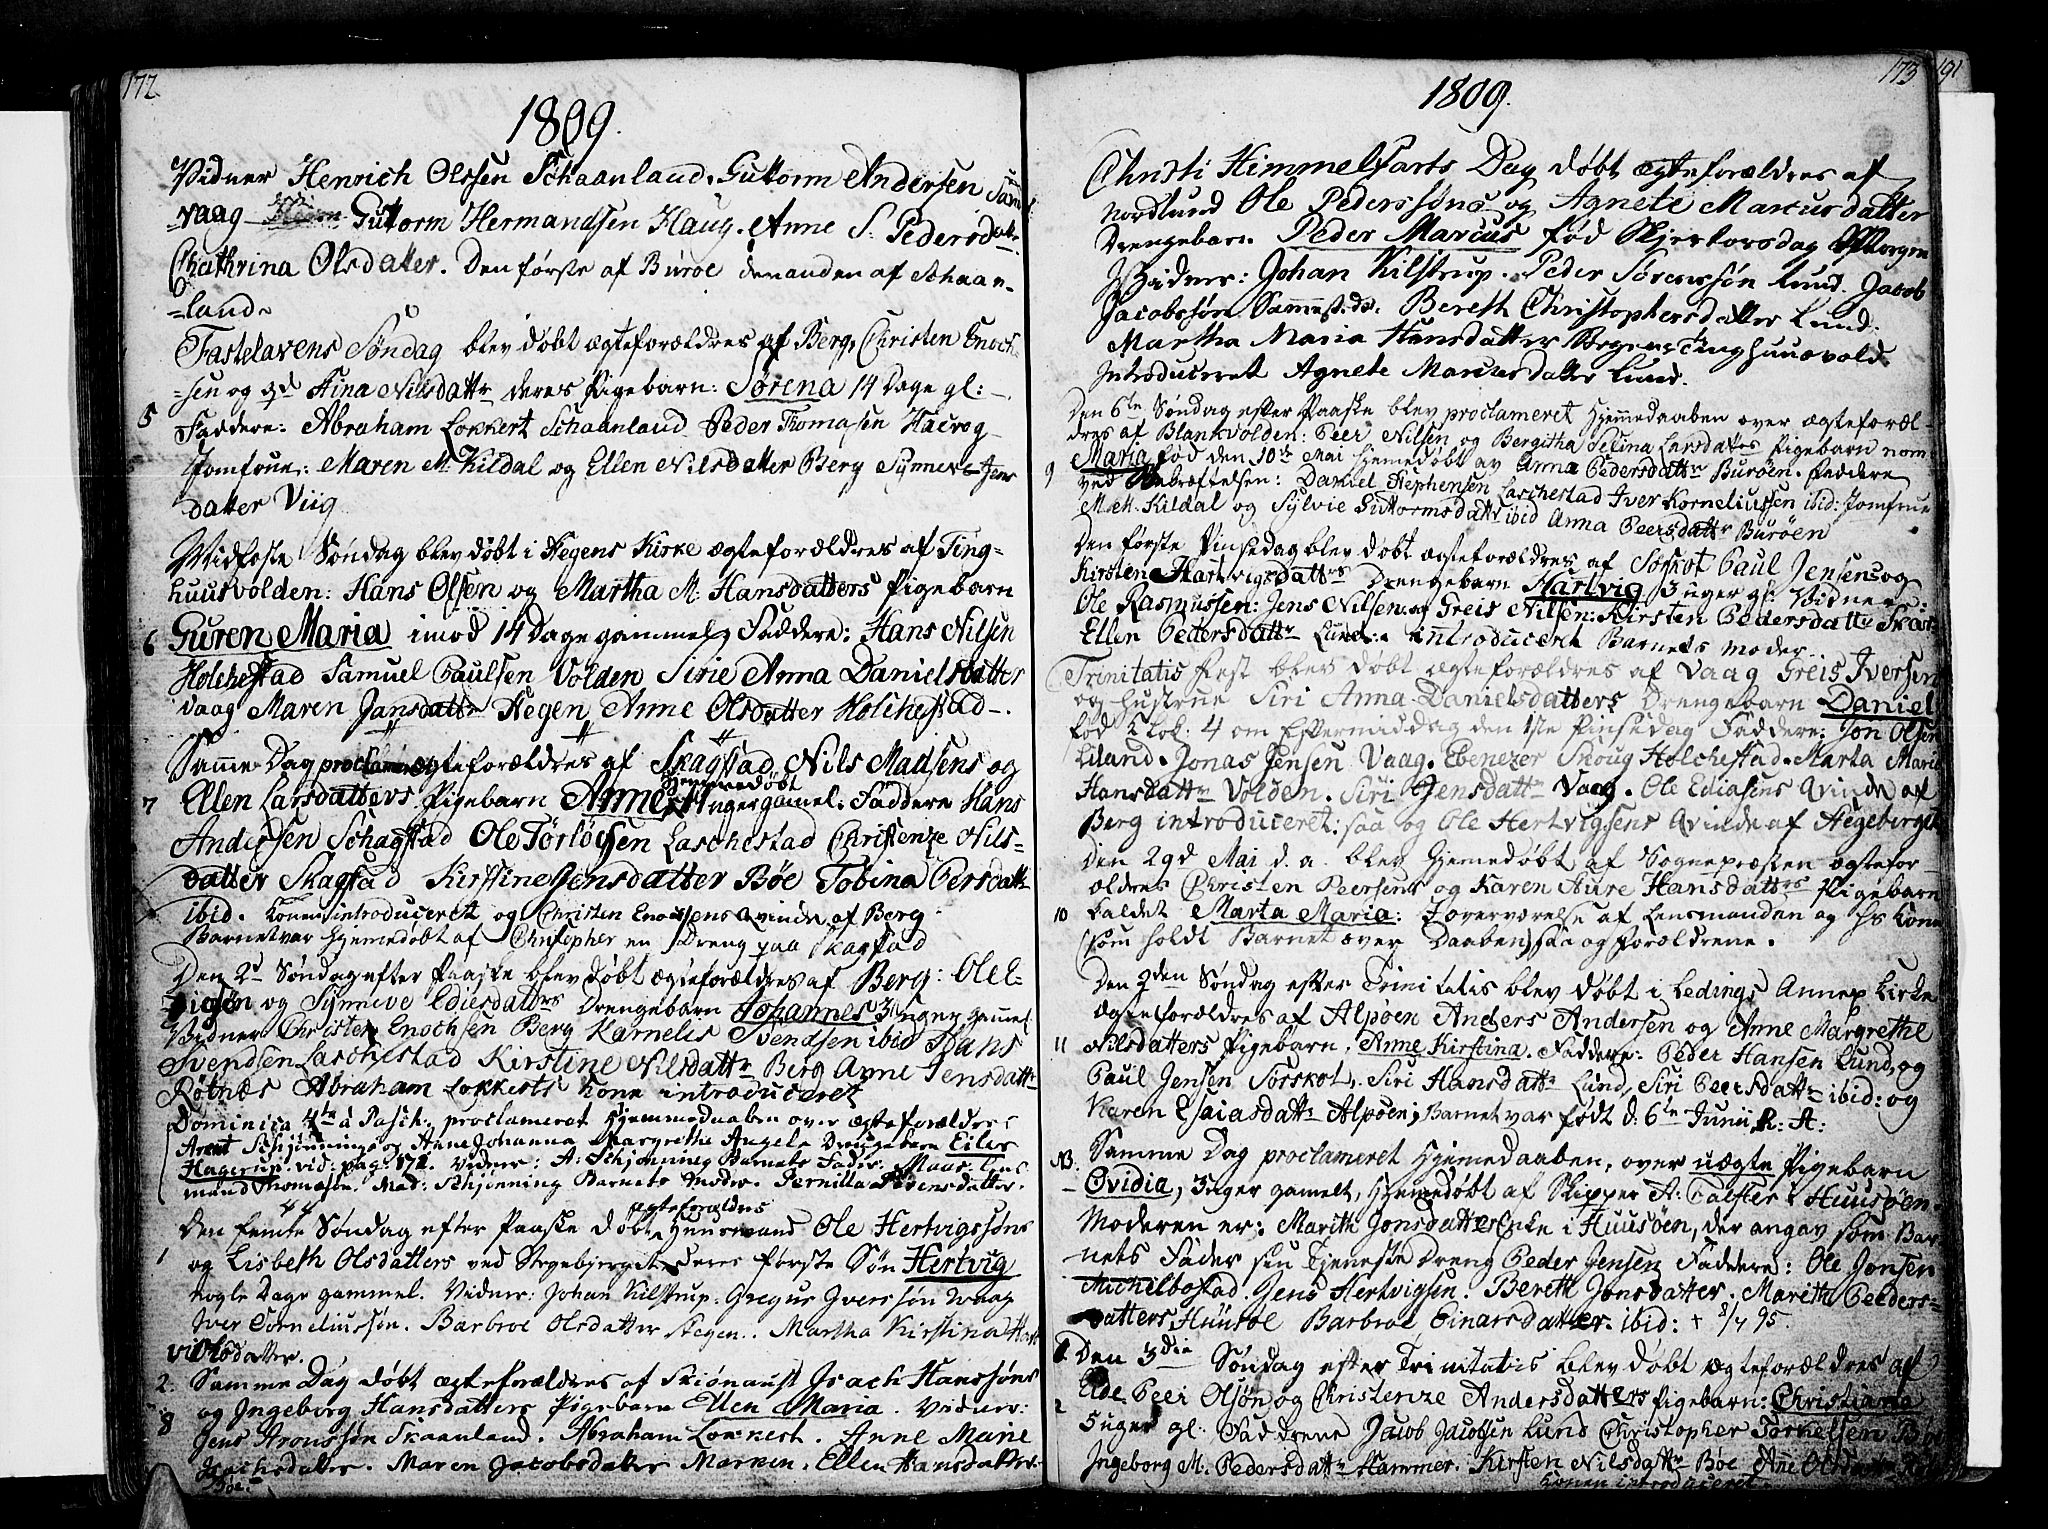 172
1809.
Vidner Henrich Olssen Schaanland. Guttorm Andersen Sand-
vaag Guttorm Hermandsen Haug. Anne S. Pedersdatr.
Chathrina Olsdatter. Den første af Buroe den anden af Schaan-
-land
Fastelavens Søndag blev døbt ægteforældres af Berg, Christen Enoch-
-sen og Fina Nilsdattr deres Pigebarn: Sørena 14 Dage gl:
5 Faddere: Abraham Lokkert Schaanland Peder Thomasen
Jomfrue: Maren M. Kildal og Ellen Nilsdatter Berg Synneve Jens
datter Viig
Midfaste Søndag blev døbt i Hegens Kirke ægteforældres af Ting-
huusvolden: Hans Olsen og Martha M. Hansdatters Pigebarn
6 Guren Maria imod 14 Dage gammel, Faddere: Hans Nilsen
Holchestad Samuel Paulsen Volden Sirie Anna Danielsdatter
Vaag Maren Jansdattr Hegen Anne Olsdatter Holchestad.
Samme Dag proclameret ægteforældres af Skagstad Nils Madsens og
hjemmedøbt
7 Ellen Larsdatters Pigebarn Anne Uger gamel. Faddere Hans
Andersen Schagstad Ole Törløvsen Laschestad Christenze Nils-
datter Skagstad Kirstine Jensdatter Bøe Tobina Persdattr
ibid. Konen introduceret og Christen Enochsens Qvinde af Berg
Barnet var hjemedøbt af Christopher en Dreng paa Skagstad
Den 2d Søndag efter Paaske blev døbt ægteforældres af Berg: Ole E-
og Synneve Ediesdattrs Drengebarn Johannes 3 Uger gammel
Vidner Christen Enochsen Berg Kornelis Svendsen ibid Hans
Svendsen Laschestad Kirstine Nilsdattr Berg Anne Jensdattr
Røtnæs Abraham Lokkerts Kone introduceret
Dominica 4te à Pasch. proclamerat Hjemmedaaben over ægteforældres
Arent Schjønnings og Anne Johanna Margrethe Angels Drengebarn Eiler
Hagerup. vid: pag: 171. Vidner: A: Schjønning Barnets Fader. Maas: Gud-
mund Thomasøn. Mad: Schjønning Barnets Moder. Pernilla Sørensdatter.
ægteforældres
Den femte Søndag efter Paaske døbt Huusmand Ole Hertvigssøns
1 og Lisbeth Olsdatters ved Stegebjerget deres første Søn Hertvig
nogle Dage gammel. Vidner: Johan Kilstrup. Gregus Iverssøn Vaag
Iver Corneliussøn. Barbroe Olsdatter Stegen. Martha Kirstina Hart-
vichsdatter.
2. Samme Dag døbt ægteforældres af Skiønaust Isach Hanssøns
og Ingeborg Hansdatters Pigebarn Ellen Maria. Vidner:
8 Jens Aronssøn Skaanland. Abraham Lokkert. Anne Marie
Isachsdatter. Maren Jacobsdatter Marnen. Ellen Hansdatter
Bøe.
173 191
1809.
Christi Himmelfarts Dag døbt ægteforældres af
Nordlund Ole Pederssøns og Agnete Marcusdatter
Drengebarn. Peder Marcus fød Skjertorsdag Morgen
Vidner: Johan Kilstrup. Peder Sørenssøn Lund. Jacob
Jacobssøn Sammest.ds. Bereth Christophersdatter Lund.
Martha Maria Hansdatter Stegens Tinghuusvold.
Introduceret Agnete Marcusdatter Lund.
Den 6te Søndag efter Paaske blev proclameret Hjemmedaaben over ægteforæl-
dres af Blankvolden: Peer Nilsen og Bergitha Selina Larsdattrs Pigebarn nom-
9 Maria fød den 10de Mai hjemedøbt av Anna Pedersdattr Burøen. Faddere
ved Bekræftelsen: Daniel Stephensen Laschestad Iver Korneliussen ibid: Jomfrue
M. Kildal og Sylvie Guttormsdattr ibid Anna Peersdattr Burøen
Den første Pinsedag blev døbt ægteforældres af Sørskot Paul Jensens og
Kirsten Hartvigsdattrs Drengebarn Hartvig 3 uger gl: Vidner:
Ole Rasmussen: Jens Nilsen og Greis Nilsen: Kirsten Pedersdattr
Ellen Pedersdattr Lund. introduceret Barnets moder.
Trinitatis Fest blev døbt ægteforældres af Vaag Greis Iversen
og Hustrue Siri Anna Danielsdatters Drengebarn Daniel
fød Klok: 4 om Eftermiddag den 1ste Pinsedag Faddere: Jon Olsen
Liland. Jonas Jensen Vaag. Ebenezer Skoug Holchestad. Marta Marie
Hansdattr Volden. Siri Jensdattr Vaag. Ole Ediasens Qvinde af
Berg introduceret: saa og Ole Hertvigsens Qvinde af
Den 29d Mai d. a. blev Hjemedøbt af Sognepræsten ægtefor-
ældres Christen Peersens og Karen Aure Hansdattrs Pigebarn
10 Kaldet Marta Maria: I overværelse af Lensmanden og hs Kone
(som holdt Barnet over Daaben) saa og Forældrene.
Den 2den Søndag efter Trinitatis blev døbt i Ledings Annex Kirke
ægteforældres af Alpøen Anders Andersen og Anne Margrethe
11 Nilsdatters Pigebarn, Anne Kirstina. Faddere: Peder Hansen Lund, og
Paul Jensen Sørskot, Siri Hansdattr Lund, Siri Peersdattr ibid: og
Karen Esaiasdattr Alpøen; Barnet var født d: 6te Junii R: A:
Samme Dag proclameret Hjemedaaben, over uægte Pigebarn
NB. Ovidia, 3 uger gamelt, hjemedøbt af Skipper A: Falster i Huusøen.
Moderen er: Marith Jonsdatter Enke i Huusøen, der angav som Bar-
nets Fader sin Tjeneste Dreng Peder Jensen Faddere: Ole Jonsen
Michelbostad. Jens Hertvigsen. Bereth Jonsdatter. Marith Peders-
datters Huusøe Barbroe Einarsdatter. ibid: + 8/7 95.
Den 3die Søndag efter Trinitatis blev døbt ægteforældres af
2 Elde Peer Olsøn og Christenze Andersdatters Pigebarn: Christiana
5 uger gl. Faddrene Jacob Jacobsen Lund Christopher Torkelsen Bøe
Ingeborg M. Pedersdattr Hammer. Kirsten Nilsdattr Bøe Ane
Konen introduceret